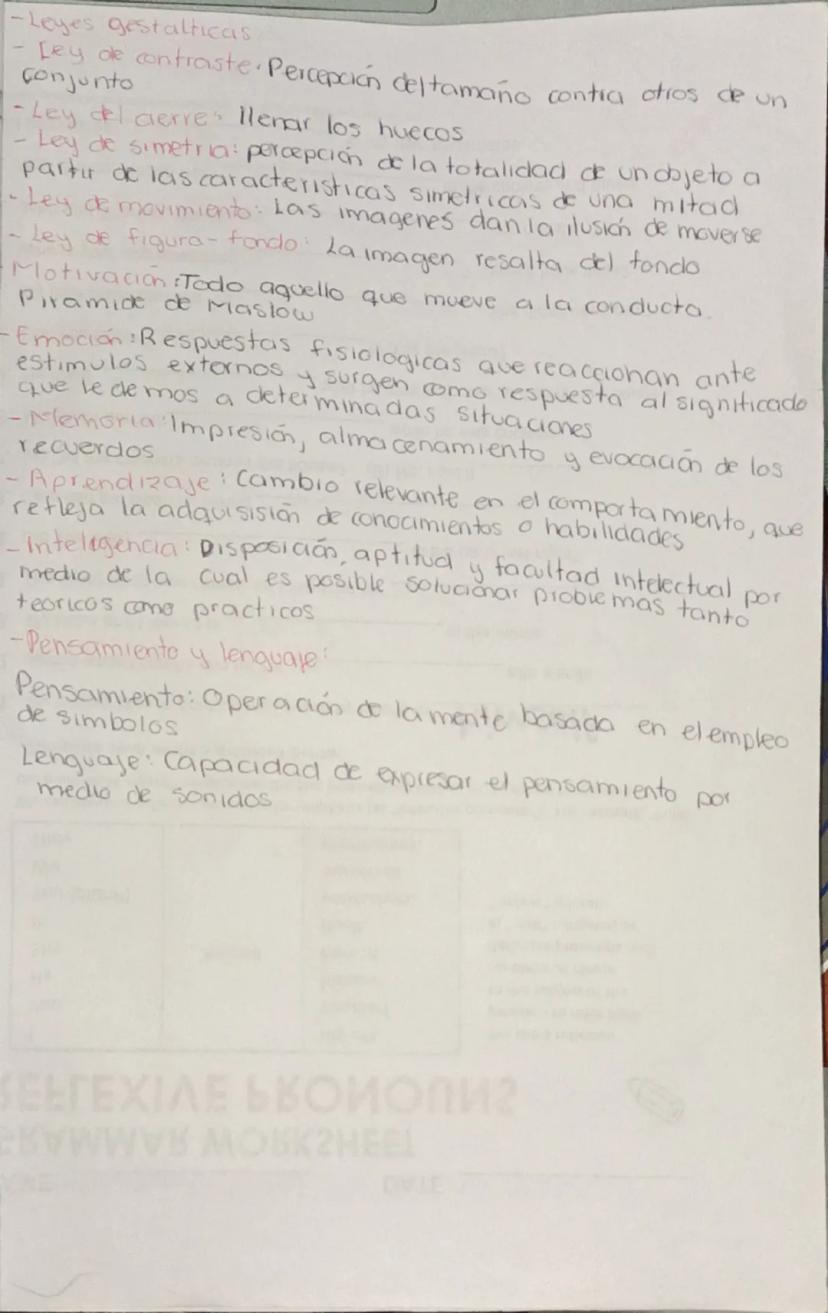 - Leyes gestalticas
- Ley de contraste: Percepción del tamaño contra otros de un
conjunto
- Ley del cierre: llenar los huecos
- Ley de simetria: percepción de la totalidad de un objeto a
partir de las caracteristicas simetricas de una mitad
- Ley de movimiento: Las imagenes dan la ilusión de moverse
- Ley de figura-fondo: La imagen resalta del fondo
Motivación: Todo aquello que mueve a la conducta.
Piramide de Maslow
- Emoción: Respuestas fisiologicas que reaccionan ante
estimulos externos y surgen como respuesta al significado
que le demos a determinadas situaciones
- Memoria: Impresión, almacenamiento y evocación de los
recuerdos
- Aprendizaje: Cambio relevante en el comportamiento, que
refleja la adquisisión de conocimientos o habilidades
- Inteligencia: Disposición, aptitud y facultad intelectual por
medio de la cual es posible solucionar problemas tanto
teoricos como practicos
- Pensamiento y lenguaje:
Pensamiento: Operación de la mente basada en el empleo
de simbolos
Lenguaje: Capacidad de expresar el pensamiento por
medio de sonidos
REFLEXIVE PRONOUNS
GRAMMAR WORKSHEET
DATE